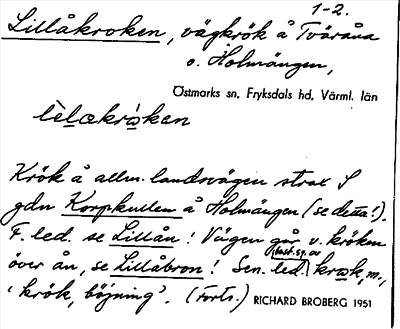 1-2.
Lillåkroken, vägkrök å Tväråna
o. Holmängen,
Östmarks sn, Fryksdals hd, Värml. län
lèlækròken
Krök å allm. landsvägen strax S
gdn Korpkullen å Holmängen (se detta!).
F. led. se Lillån! Vägen går v. kröken
över ån, se Lillåbron! Sen. led. best. sg. av krok, m.,
'krök, böjning'. (Forts.) RICHARD BROBERG 1951